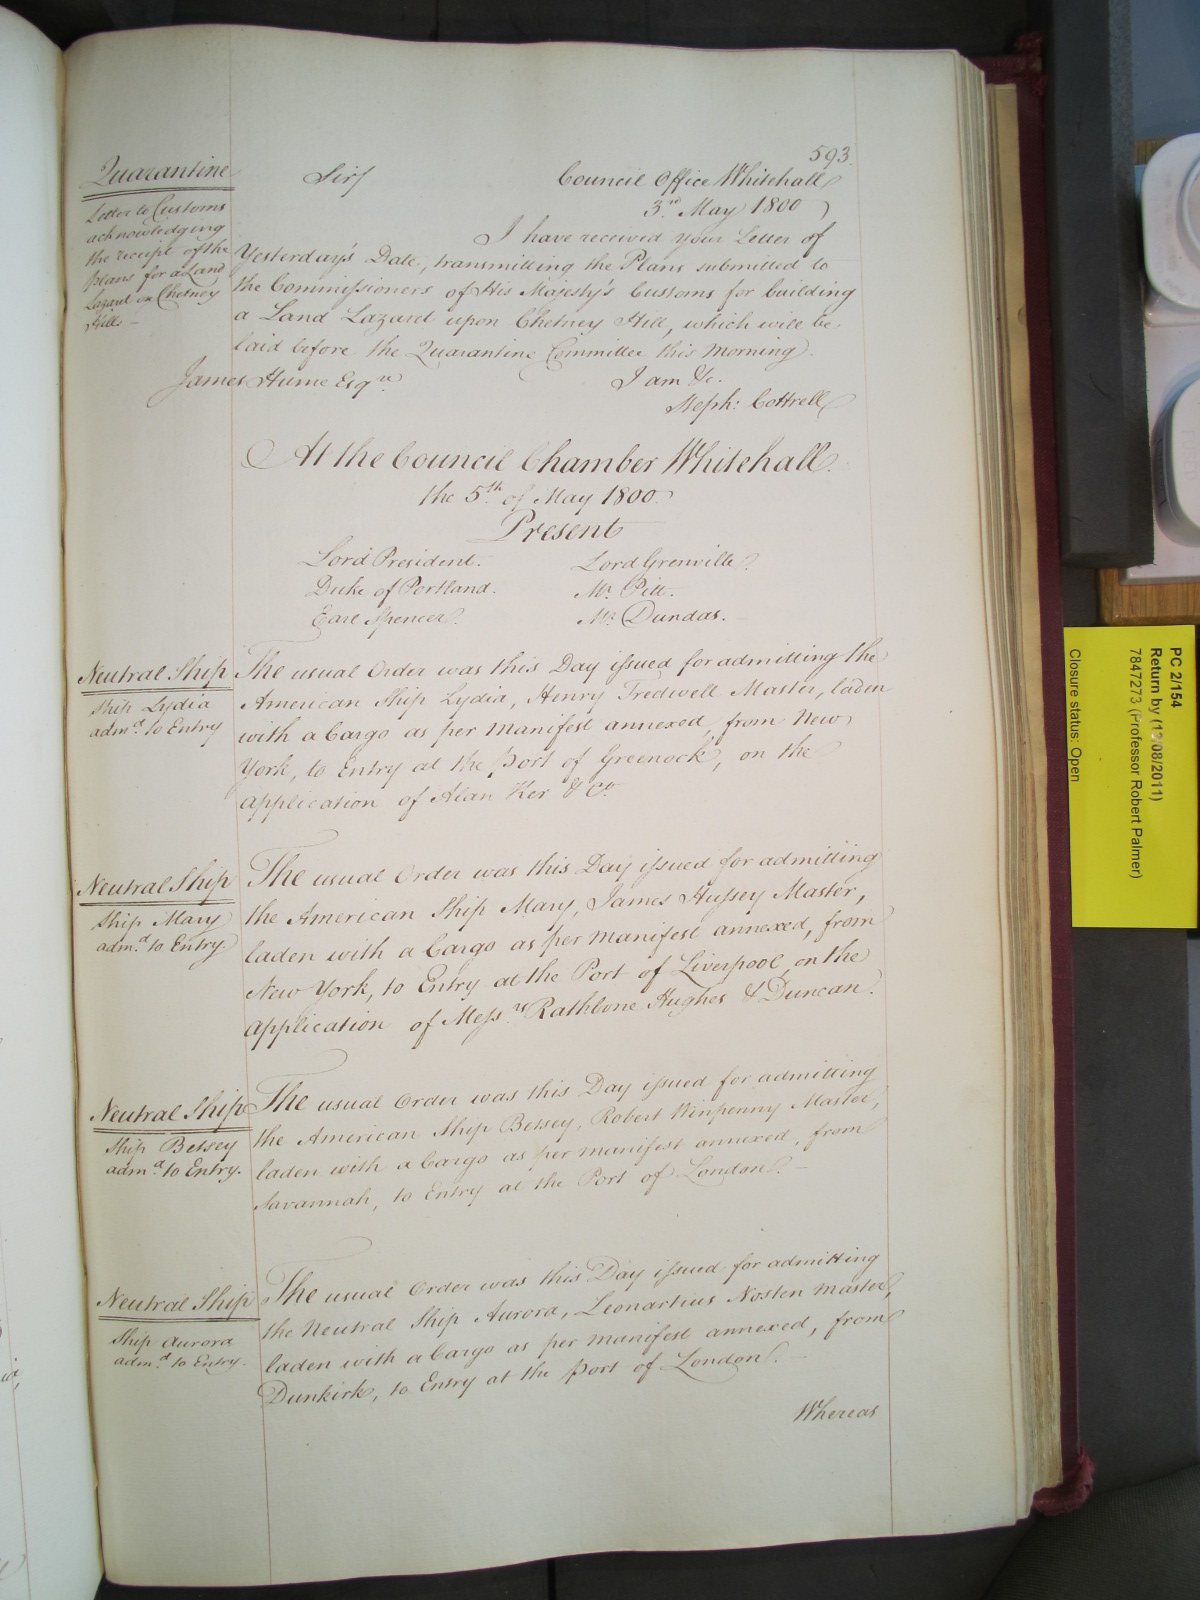 593.
Quarantine
Letter to Customs
acknowledging
the receipt of the
plans for a Land
Lazaret on Chetney
Hill. —
Sir/
Council Office Whitehall
3rd May 1800
I have received your Letter of
Yesterday's Date, transmitting the Plans submitted to
the Commissioners of His Majesty's Customs for building
a Land Lazaret upon Chetney Hill, which will be
laid before the Quarantine Committee this Morning.
James Hume Esqre
I am &c.
Steph: Cottrell
At the Council Chamber Whitehall.
the 5th of May 1800
Present
Lord President. Lord Grenville.
Duke of Portland. Mr. Pitt.
Earl Spencer. Mr. Dundas.
Neutral Ship
Ship Lydia
admd. to Entry
The usual Order was this Day issued for admitting the
American Ship Lydia, Henry Tredwell Master, laden
with a Cargo as per Manifest annexed, from New
York, to Entry at the Port of Greenock, on the
Application of Alan Ker & Co.
Neutral Ship
Ship Mary
admd. to Entry.
The usual Order was this Day issued for admitting
the American Ship Mary, James Hussey Master,
laden with a Cargo as per Manifest annexed, from
New York, to Entry at the Port of Liverpool, on the
Application of Messrs. Rathbone Hughes & Duncan.
Neutral Ship
Ship Betsey
admd. to Entry.
The usual Order was this Day issued for admitting
the American Ship Betsey, Robert Winpenny Master,
laden with a Cargo as per Manifest annexed, from
Savannah, to Entry at the Port of London. —
Neutral Ship
Ship Aurora
admd. to Entry.
The usual Order was this Day issued for admitting
the Neutral Ship Aurora, Leonartius Nosten Master,
laden with a Cargo as per Manifest annexed, from
Dunkirk, to Entry at the Port of London. —
Whereas
PC 2/154
Return by (1 08/2011)
7847273 (Professor Robert Palmer)
Closure status: Open